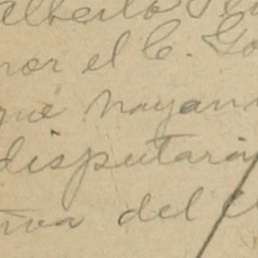 Alberto
por el C. Go
que hayan
disputara
iva del